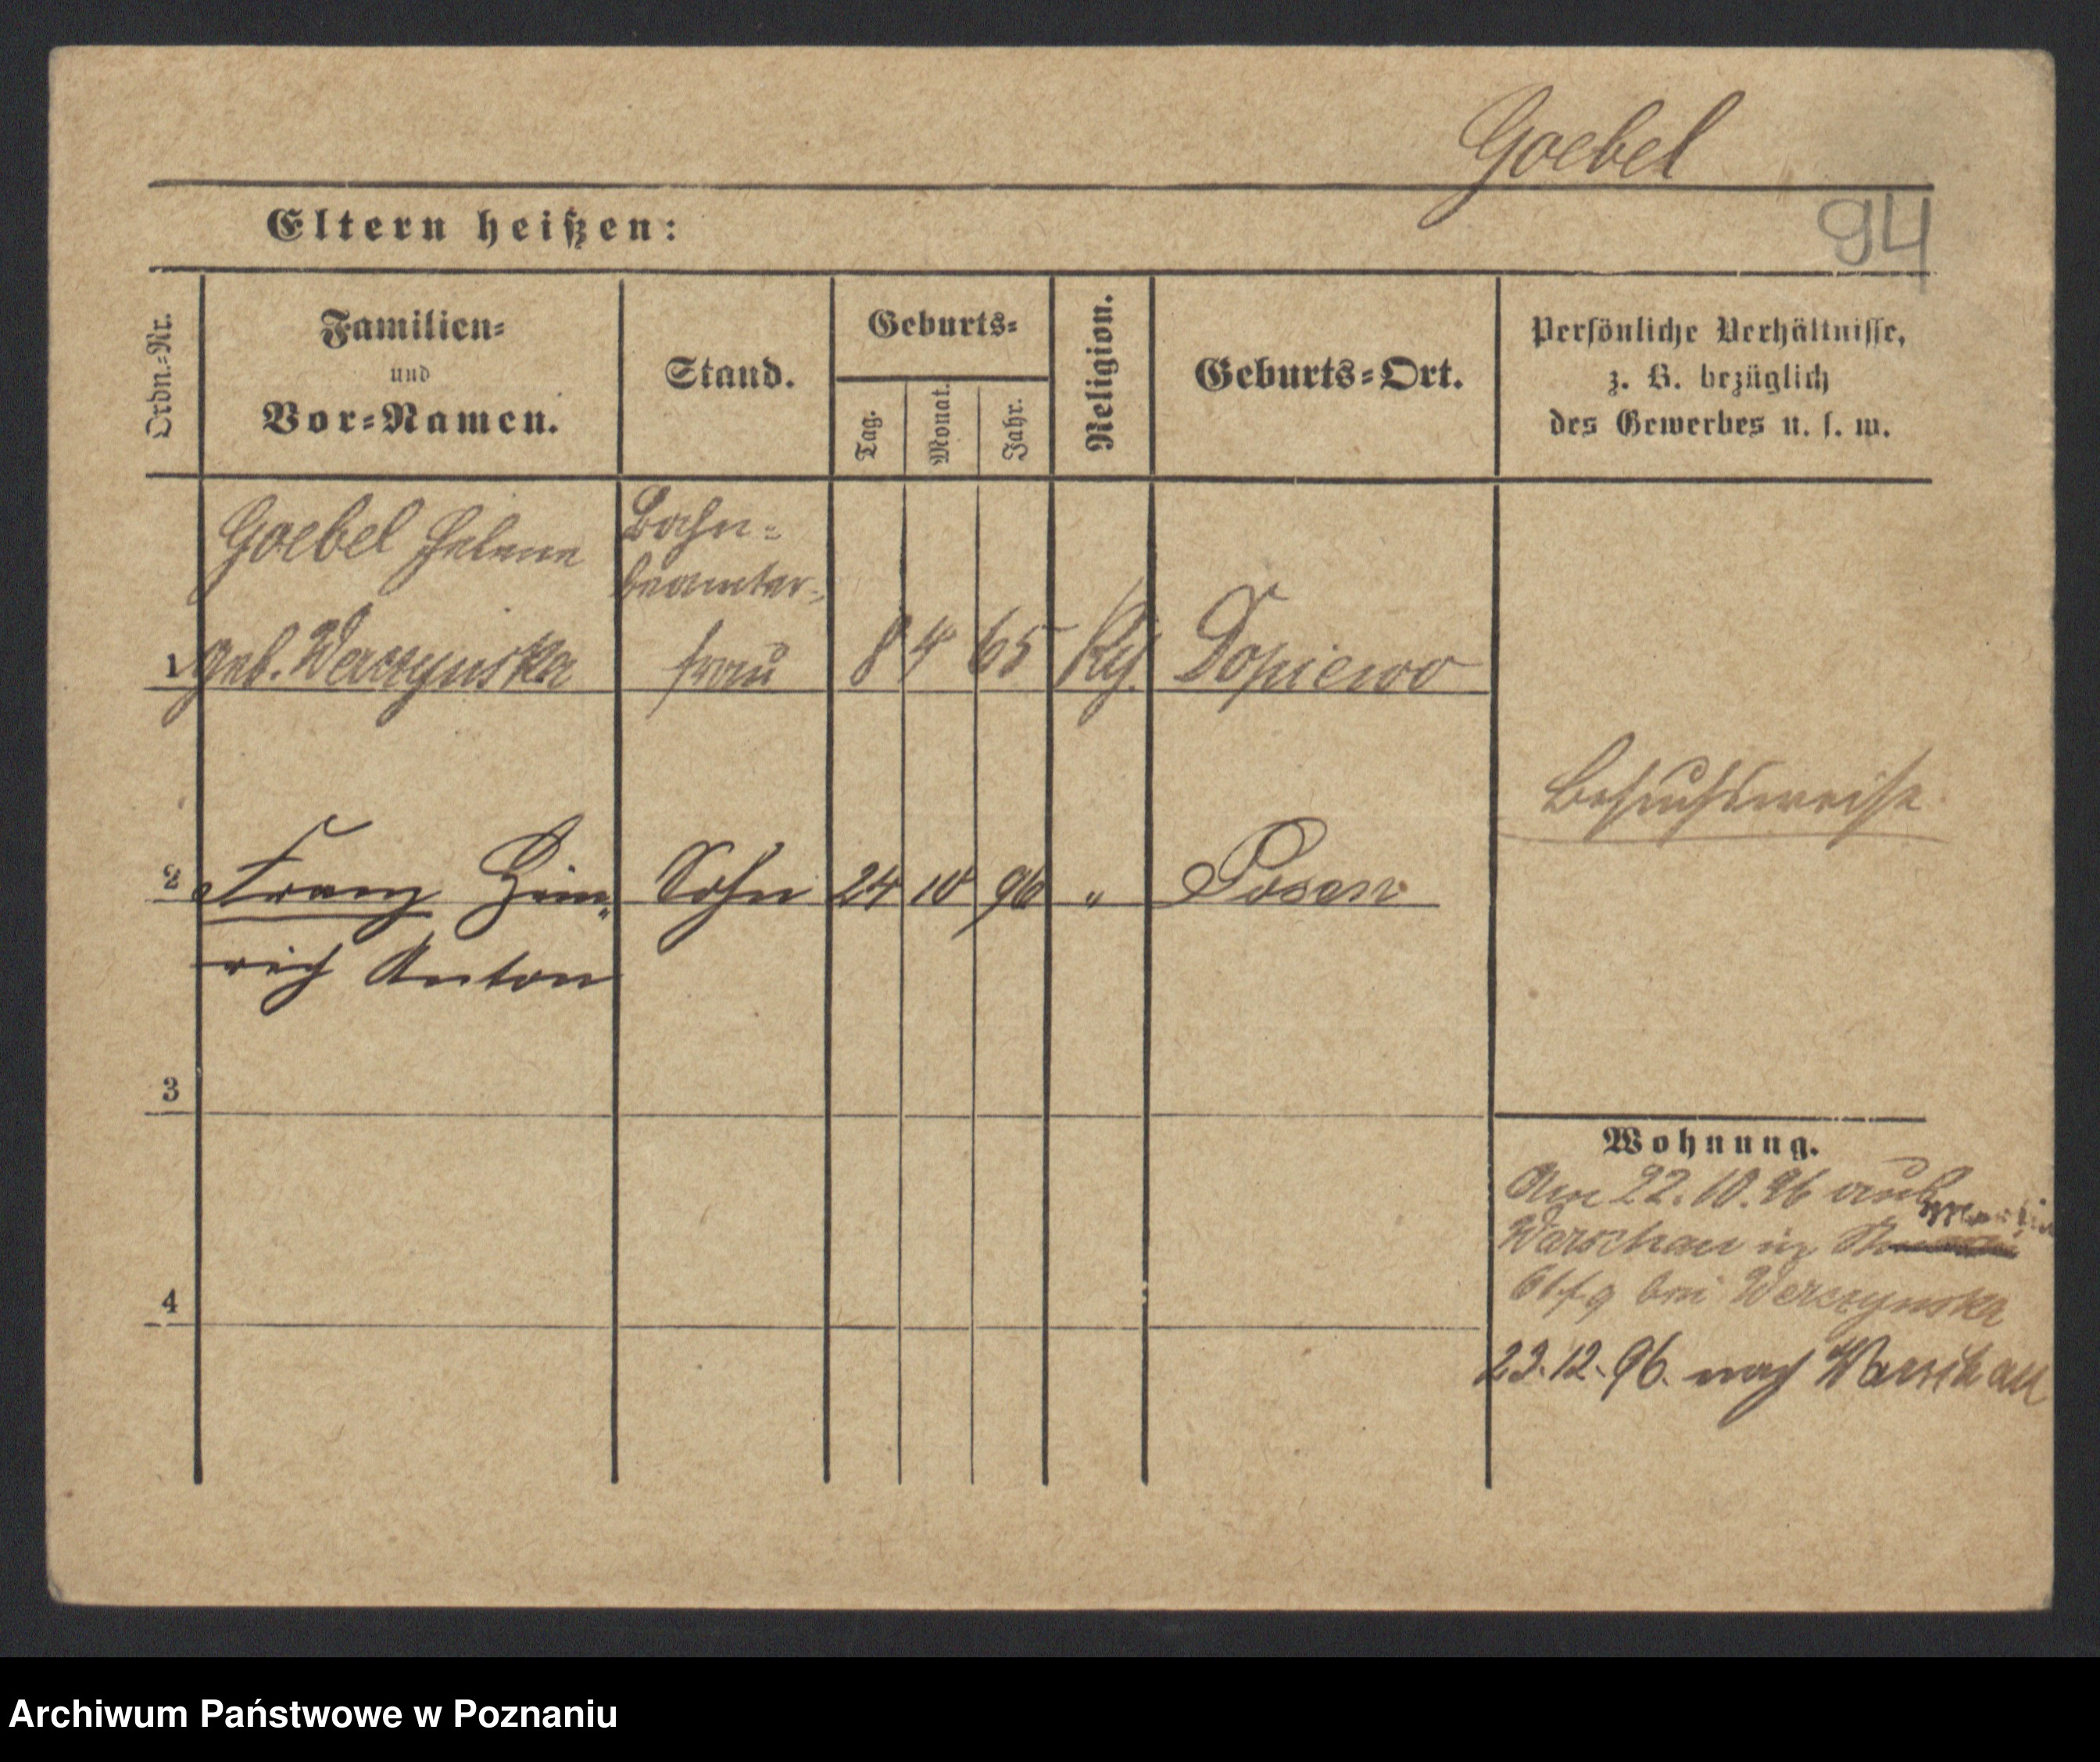 Goebel
94
Eltern heißen:
Ordn.-Nr.
Familien-
und
Vor-Namen.
Stand.
Geburts-
Tag.
Monat.
Jahr.
Religion.
Geburts-Ort.
Persönliche Verhältnisse,
z. B. bezüglich
des Gewerbes u. s. w.
Goebel Helene
geb. Werczynska
Bahn-
beamter-
frau
1
8 4 65
Dopiewo
Besuchsweise
2
Franz Hein-
rich Anton
Sohn
24 10 96 "
Posen
3
4
Wohnung.
Am 22.10.96 aus
Warschau in
bei Werczynska
23.12.96. nach Warschau
Archiwum Państwowe w Poznaniu